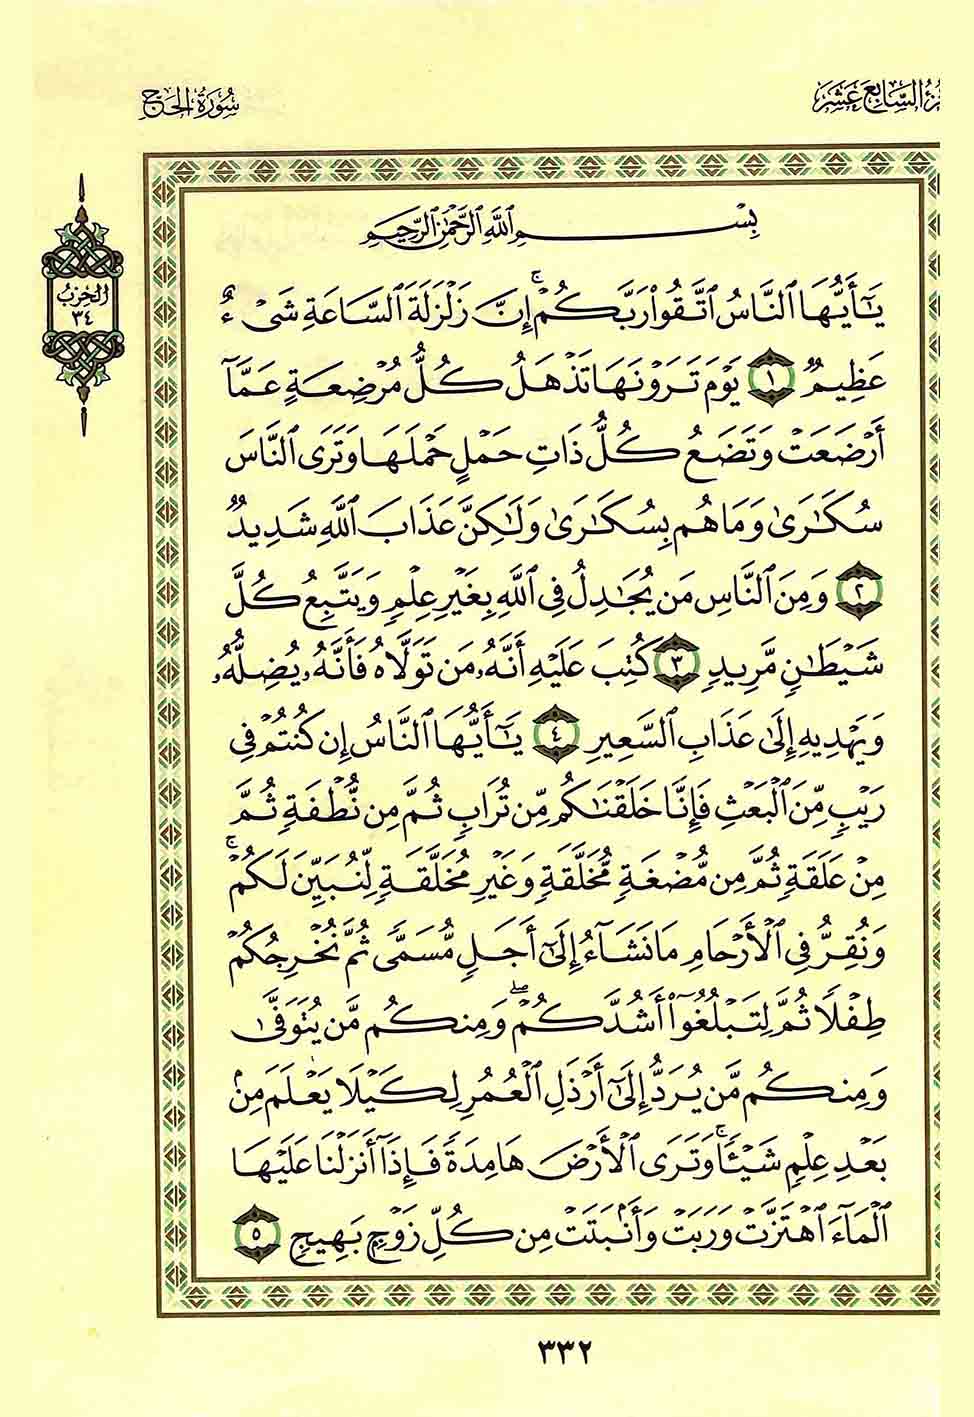 ـزءُ السَّابِعَ عَشَرَ
سُورَةُ الحَجِّ
بِسْمِ ٱللَّهِ ٱلرَّحْمَٰنِ ٱلرَّحِيمِ
الحِزْبُ
٣٤
يَٰٓأَيُّهَا ٱلنَّاسُ ٱتَّقُوا۟ رَبَّكُمْ ۚ إِنَّ زَلْزَلَةَ ٱلسَّاعَةِ شَىْءٌ
عَظِيمٌ ١ يَوْمَ تَرَوْنَهَا تَذْهَلُ كُلُّ مُرْضِعَةٍ عَمَّآ
أَرْضَعَتْ وَتَضَعُ كُلُّ ذَاتِ حَمْلٍ حَمْلَهَا وَتَرَى ٱلنَّاسَ
سُكَٰرَىٰ وَمَا هُم بِسُكَٰرَىٰ وَلَٰكِنَّ عَذَابَ ٱللَّهِ شَدِيدٌ
٢ وَمِنَ ٱلنَّاسِ مَن يُجَٰدِلُ فِى ٱللَّهِ بِغَيْرِ عِلْمٍ وَيَتَّبِعُ كُلَّ
شَيْطَٰنٍ مَّرِيدٍ ٣ كُتِبَ عَلَيْهِ أَنَّهُۥ مَن تَوَلَّاهُ فَأَنَّهُۥ يُضِلُّهُۥ
وَيَهْدِيهِ إِلَىٰ عَذَابِ ٱلسَّعِيرِ ٤ يَٰٓأَيُّهَا ٱلنَّاسُ إِن كُنتُمْ فِى
رَيْبٍ مِّنَ ٱلْبَعْثِ فَإِنَّا خَلَقْنَٰكُم مِّن تُرَابٍ ثُمَّ مِن نُّطْفَةٍ ثُمَّ
مِنْ عَلَقَةٍ ثُمَّ مِن مُّضْغَةٍ مُّخَلَّقَةٍ وَغَيْرِ مُخَلَّقَةٍ لِّنُبَيِّنَ لَكُمْ ۚ
وَنُقِرُّ فِى ٱلْأَرْحَامِ مَا نَشَآءُ إِلَىٰٓ أَجَلٍ مُّسَمًّى ثُمَّ نُخْرِجُكُمْ
طِفْلًا ثُمَّ لِتَبْلُغُوٓا۟ أَشُدَّكُمْ ۖ وَمِنكُم مَّن يُتَوَفَّىٰ
وَمِنكُم مَّن يُرَدُّ إِلَىٰٓ أَرْذَلِ ٱلْعُمُرِ لِكَيْلَا يَعْلَمَ مِنۢ
بَعْدِ عِلْمٍ شَيْـًٔا ۚ وَتَرَى ٱلْأَرْضَ هَامِدَةً فَإِذَآ أَنزَلْنَا عَلَيْهَا
ٱلْمَآءَ ٱهْتَزَّتْ وَرَبَتْ وَأَنۢبَتَتْ مِن كُلِّ زَوْجٍۭ بَهِيجٍ ٥
٣٣٢